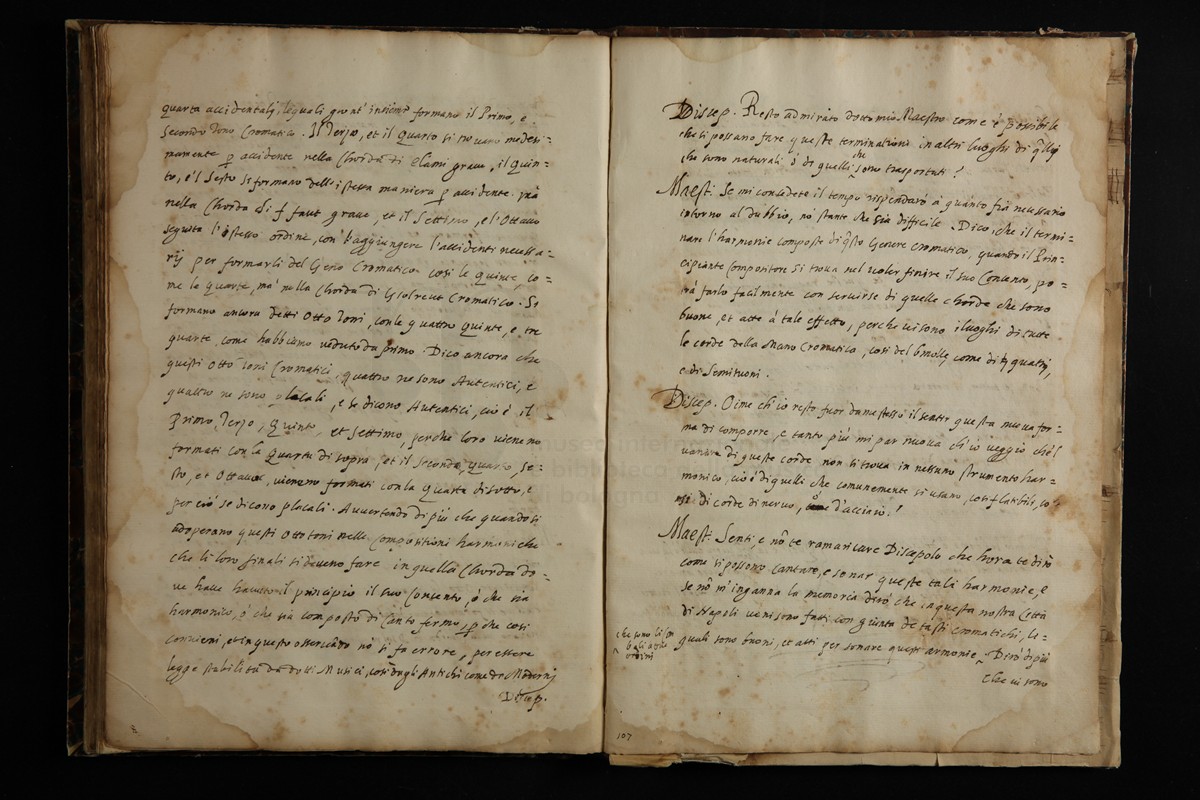 quarta accidentali, le quali gionte insieme formano il Primo, e
secondo Tono Cromatico. Il Terzo, et il Quarto si trovano medesi=
mamente p accidente nella Chorda di Elami grave, il Quin=
to, e'l Sesto si formano dell'istessa maniera p accidente
nella Chorda di f faut grave, et il Settimo, e l'Ottavo
seguita l'istesso ordine, con l'aggiungere l'accidenti necessa=
rij per formarli del Geno Cromatico cosi le Quinte, co=
me le quarte, mà nella Chorda di Gsolreut Cromatico. Si
formano ancora detti Otto Toni, con le quattro Quinte, e tre
quarte, come habbiamo veduto da primo. Dico ancora che
questi Otto Toni Cromatici, Quattro ne sono Autentici, e
quattro ne sono placali, e se dicono Autentici, ciò è il
Primo, Terzo, Quinto, et Settimo, perche loro vieneno
formati con la Quarta di sopra, et il Secondo, Quarto, Se=
sto, et Ottavo, vieneno formati con la Quarta di sotto, e
per ciò se dicono placali. Avvertendo di più che quando si
adoperano questi Otto toni nelle Compositioni harmoniche
che li loro finali si deveno fare in quella Chorda do=
ve have havuto il principio il suo Concento, ò che sia
harmonico, ò che sia composto di Canto fermo, p che cosi
conviene, et in questo osservare nõ si fa errore, per essere
legge stabilita da dotti Musici, cosi dagli Antichi come da Moderni
Discep.
Discep. Resto admirato dotto mio Maestro come è possibile
che si possano fare queste terminationi in altri luoghi di q̃lli
che sono naturali ò di quelli che sono trasportati?
Maest. Se mi concedete il tempo risponderò à quanto fia necessario
intorno al dubbio, nõ stante che sia difficile. Dico, che il termi=
nare l'harmonie composte di q̃sto Genere Cromatico, quando il Prin=
cipiante Compositore si trova nel voler finire il suo Concento, po=
trà farlo facilmente con servirse di quelle chorde che sono
buone, et atte à tale effetto, perche vi sono i luoghi di tutte
le corde della Mano Cromatica, cosi del b molle, come di ♮ quadri,
e di Semituoni.
Discep. Oime ch'io resto fuor di me stesso il sentir questa nuova for=
ma di comporre, e tanto più mi par nuova ch'io veggio che'l
di queste corde non si trova in nessuno strumento har=
monico, ciò è di quelli che comunemente si usano, cosi flatibili, co=
me di corde di nervo, ò d'acciaio!
Maest. Senti, e nõ te ramaricare Discepolo che hora te dirò
come si possono Cantare, e sonar queste tali harmonie, e
se nõ m'inganna la memoria dirò che in questa nostra Città
di Napoli ve ni sono fatti con gionta de tasti cromatichi, le=
che sono li
ordini
quali sono buoni, et atti per sonare questi armonie. Dirò di più
che vi sono
107